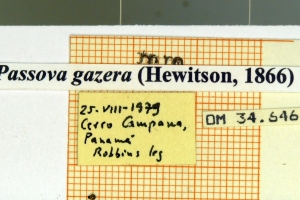 Passova gazera (Hewitson, 1866)
25-VIII-1979
Cerro Campana,
Panamá
Robbins leg
DM 34.646